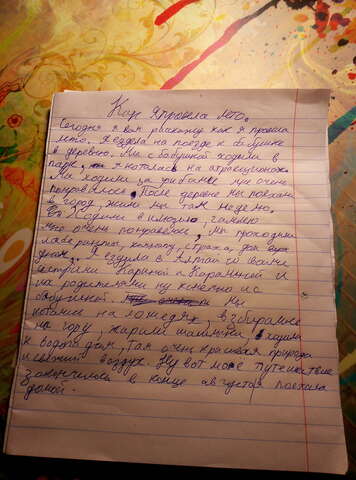 Как я провела лето.
Сегодня я вам раскажу как я провела
лето. Я ездила на поезде к бабушке
в деревню. Мы с бабушкой ходили в
парк, я каталась на атракционах
Мы ходили на
понравилось. После деревни мы поехали
в город, жили мы там неделю,
ходили в
мне очень понравелось, Мы проходили
лаберинты, комнату, страха, дом
Я ездила в Алтай со своими
сёстрами Кариной и Каролиной и
родителями ну конечно и с
бабушкой. Мы
катались на лошедях, взбирались
на гору, жарили шашлыки, ходили
к водопадам, Там очень красивая природа
и свежий воздух. Ну вот моё путешествие
закончилось в конце августа я поехала
домой.